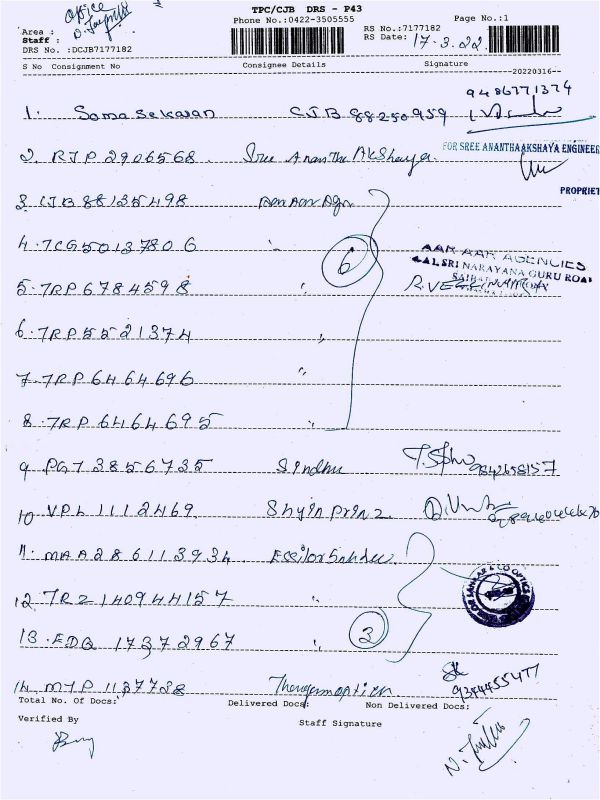 Office
TPC/CJB DRS - P43
Phone No.:0422-3505555
Page No.:1
Area :
Staff :
DRS No. :DCJB7177182
RS No.:7177182
RS Date: 17.3.22
S No Consignment No Consignee Details Signature
--20220316--
9486771374
1. Somasekaran CJB 88250959
2. RJP 2906568 Sree Ananthe Akshaya
FOR SREE ANANTHAAKSHAYA ENGINEER
PROPRIET
3. CJB 88135498 Aan Aan Agn
4. 7CG5013780 6 "
6
AAR AAR AGENCIES
SRI NARAYANA GURU ROAD
5. 7RP6784598 "
6. 7RP5521374 "
7. 7RP6464696 "
8. 7RP6464695 "
9 PG7 3856735 Sindhu 9842658157
10 VPL 1112469 Shyin Prinz
11. MAA286113934 Essilor
12. 7RZ140944157 "
13. EDQ 17372967 "
3
14. MTP 1137728
9344455477
Total No. Of Docs: Delivered Docs: Non Delivered Docs:
Verified By Staff Signature